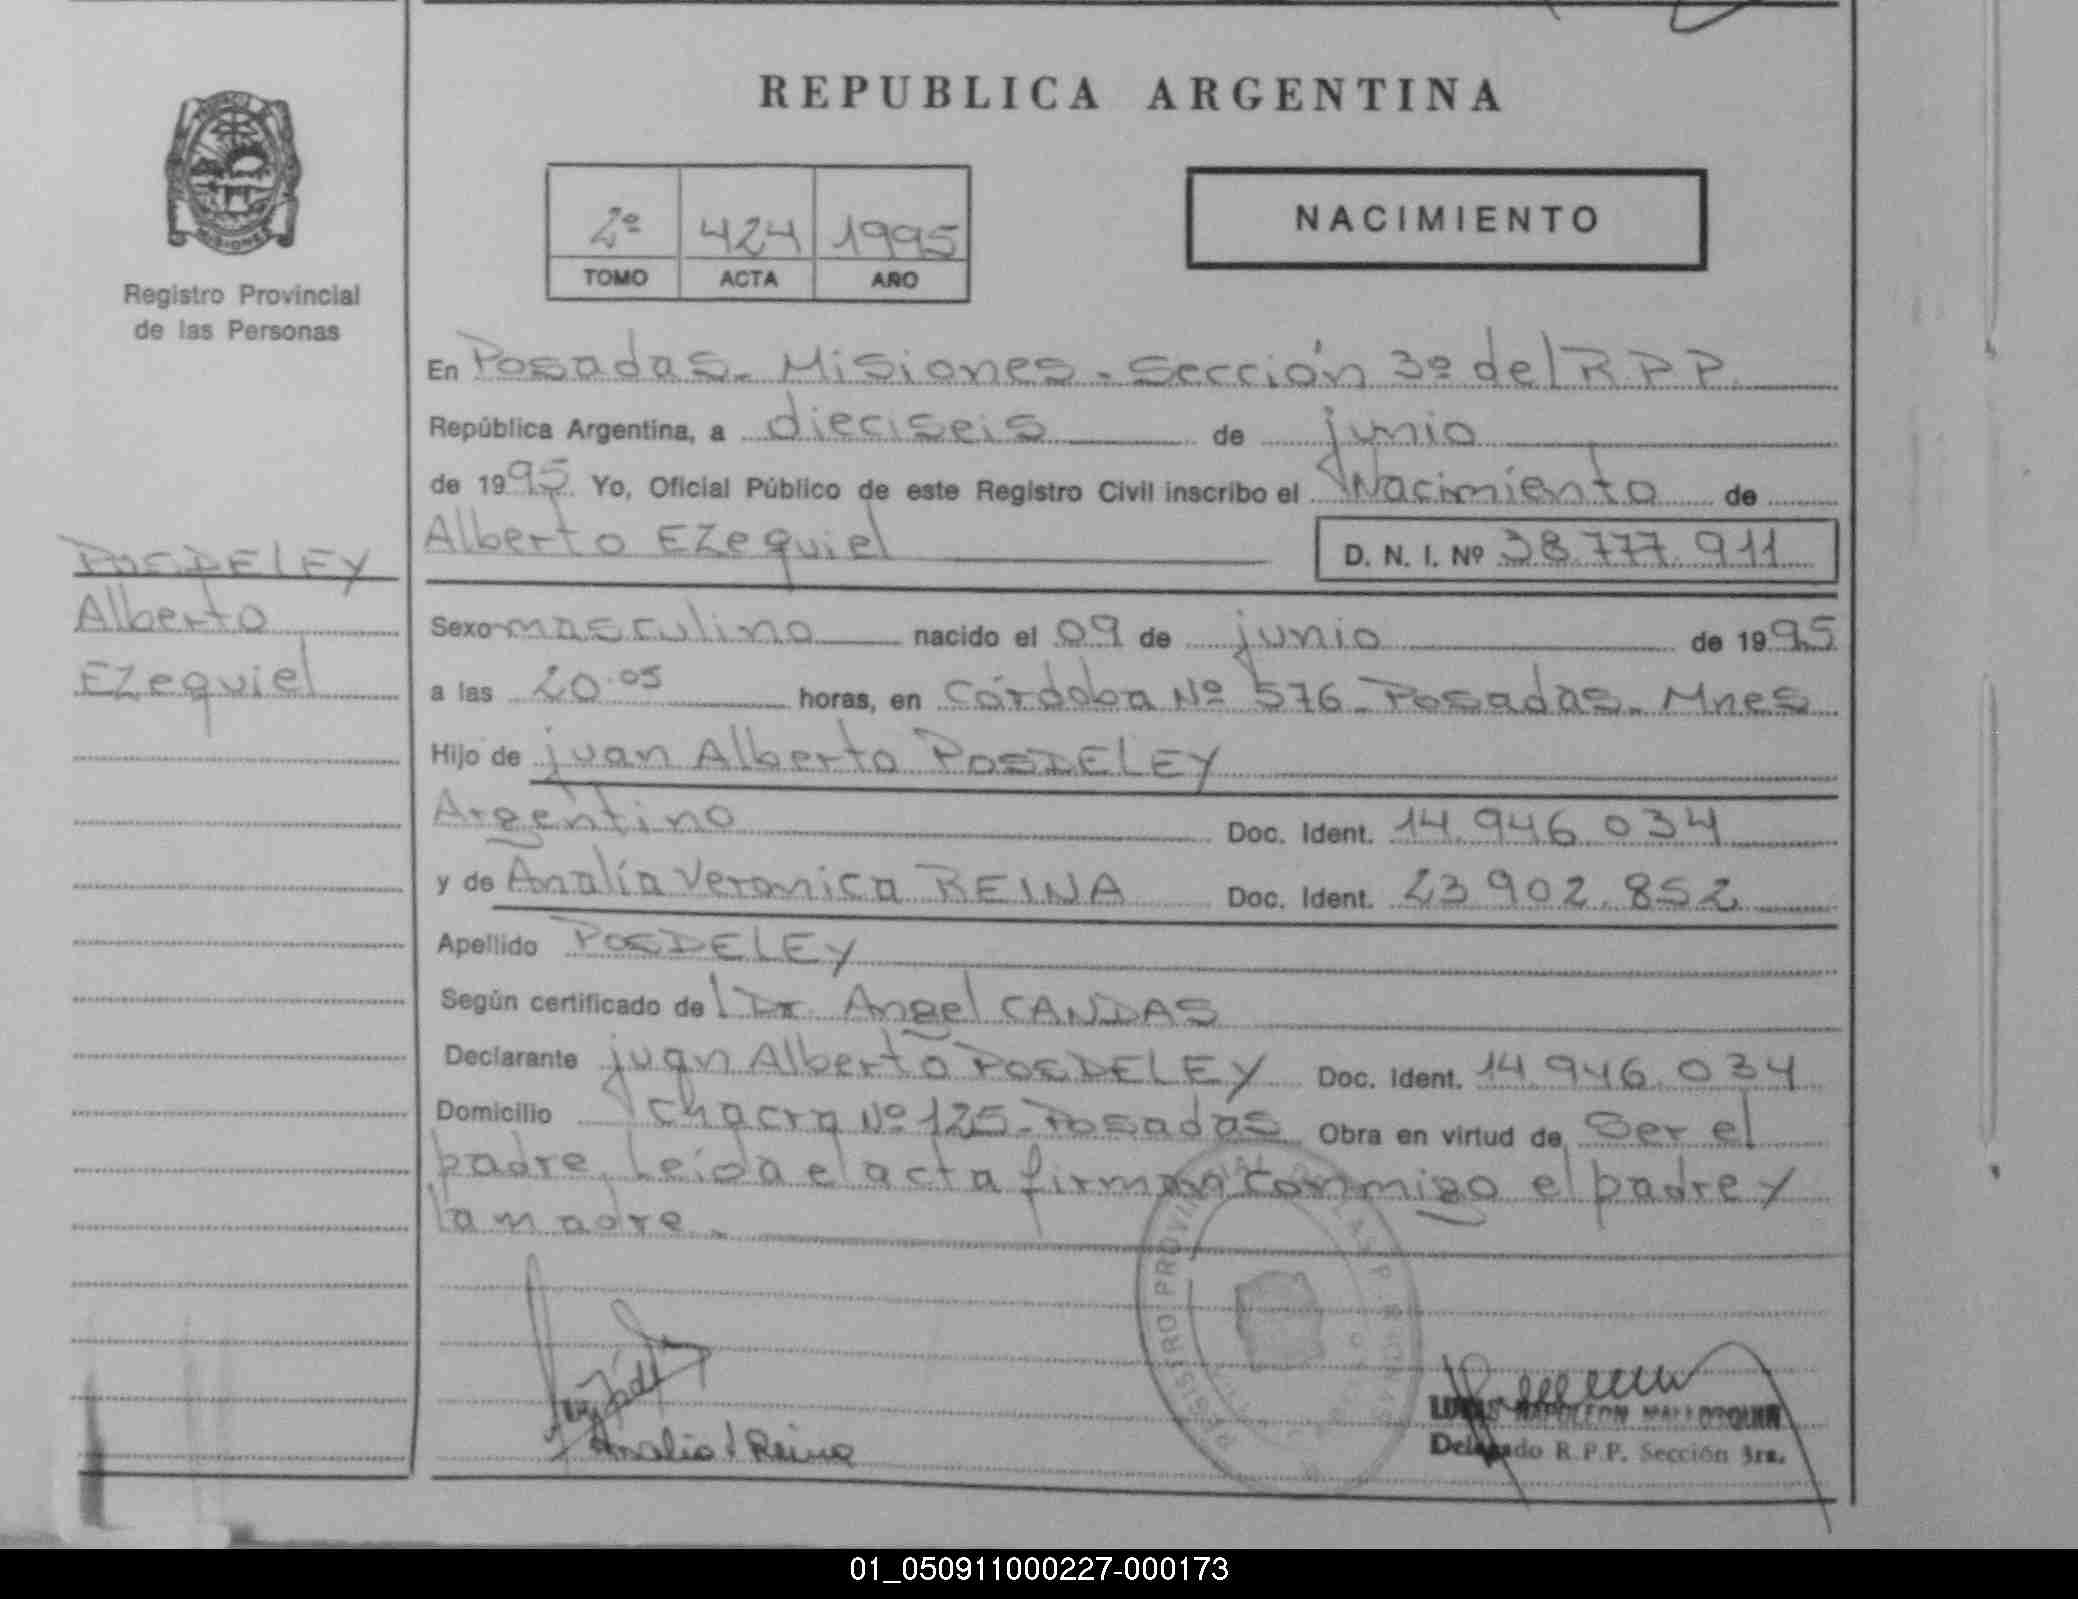 REPUBLICA ARGENTINA
MISIONES
Registro Provincial
de las Personas
2º 424 1995
TOMO ACTA AÑO
NACIMIENTO
En Posadas. Misiones. Sección 3º del R.P.P.
República Argentina, a dieciseis de junio
de 1995. Yo, Oficial Público de este Registro Civil inscribo el Nacimiento de
Alberto EZequiel D. N. I. Nº 38.777.911
POSDELEY
Alberto
EZequiel
Sexo masculino nacido el 09 de junio de 1995
a las 20.05 horas, en Córdoba Nº 576. Posadas. Mnes
Hijo de juan Alberto POSDELEY
Argentino Doc. Ident. 14.946.034
y de Analía Veronica REINA Doc. Ident. 23.902.852
Apellido POSDELEY
Según certificado del Dr. Angel CANDAS
Declarante juan Alberto POSDELEY Doc. Ident. 14.946.034
Domicilio Chacra Nº 125. Posadas Obra en virtud de Ser el
padre. Leída el acta firman conmigo el padre y
la madre.
REGISTRO PROVINCIAL DE LAS PERSONAS
Analia V Reina
LUCAS NAPOLEON MALLORQUIN
Delegado R.P.P. Sección 3ra.
01_050911000227-000173